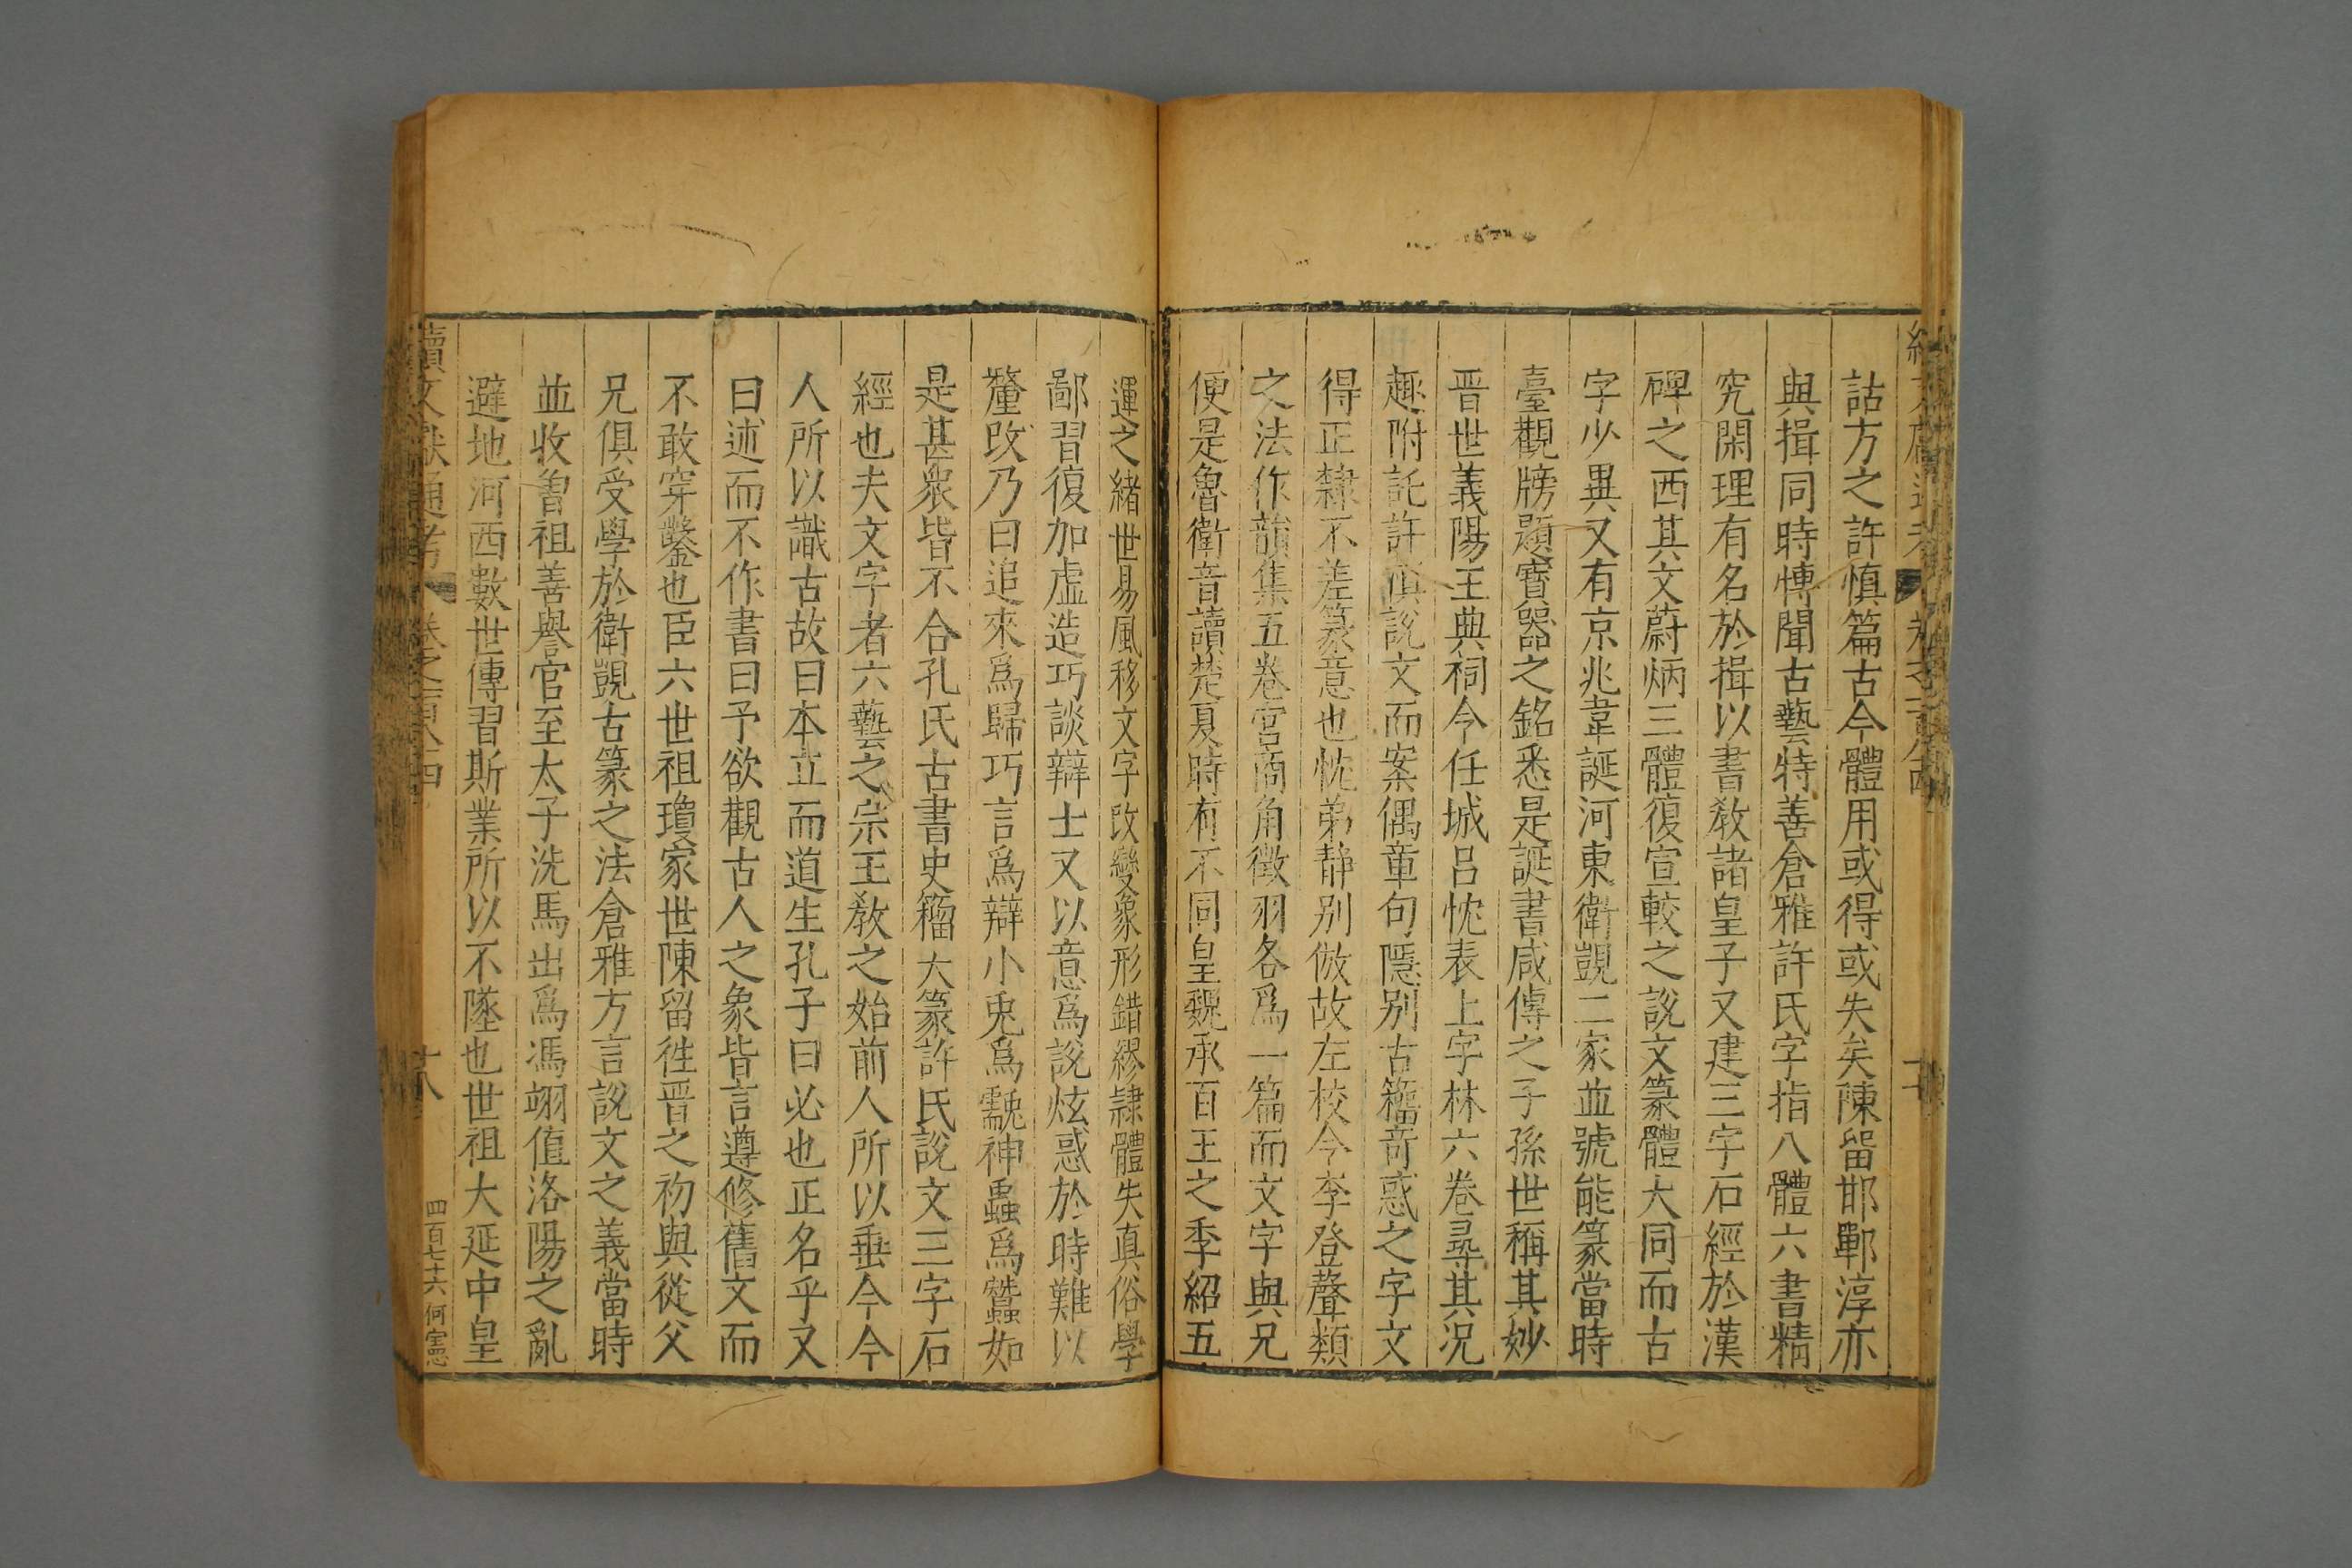 詁方之許慎篇古今體用或得或失矣陳留邯鄲淳亦
與揖同時愽聞古藝特善倉雅許氏字指八體六書精
究閑理有名於揖以書教諸皇子又建三字石經於漢
碑之西其文蔚炳三體復宣較之說文篆體大同而古
字少異又有京兆韋誕河東衛覬二家並號能篆當時
臺觀牓題寶器之銘悉是誕書咸傳之子孫世稱其妙
晉世義陽王典祠令任城呂忱表上字林六卷尋其况
趣附託許慎說文而案偶章句隱别古籀竒惑之字文
得正隸不差篆意也忱弟静别倣故左校令李登聲類
之法作韻集五卷宫商角徵羽各爲一篇而文字與兄
便是魯衛音讀楚夏時有不同皇魏承百王之季紹五
運之緒世易風移文字改變象形錯繆隷體失真俗學
鄙習復加虛造巧談辯士又以意爲說炫惑於時難以
釐改乃曰追來爲歸巧言爲辯小兎爲䨲神蟲爲蠶如
是甚衆皆不合孔氏古書史籀大篆許氏說文三字石
經也夫文字者六藝之宗王教之始前人所以垂今今
人所以識古故曰本立而道生孔子曰必也正名乎又
曰述而不作書曰予欲觀古人之象皆言遵修舊文而
不敢穿鑿也臣六世祖瓊家世陳留徃晋之初與從父
兄俱受學於衛覬古篆之法倉雅方言說文之義當時
並收善譽祖官至太子洗馬出爲馮翊值洛陽之亂
避地河西數世傳習斯業所以不墜也世祖大延中皇
續文獻通考 卷之一百八十四 十八 四百七十六 何宪